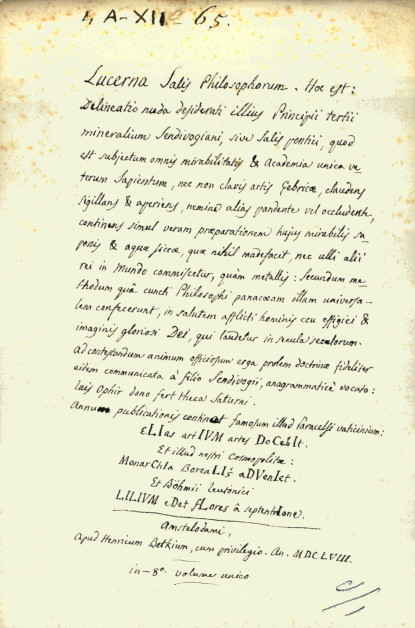 4 A-XIIº 65.
Lucerna Salis Philosophorum. Hoc est:
Delineatio nuda desiderati illius Principii tertii
mineralium Sendivogiani, sive salis pontici, quod
est subjectum omnis mirabilitatis & Academia unica ve-
terum Sapientum, nec non clavis artis Gebricæ, claudens
sigillans & aperiens, nemine alias pandente vel occludente,
continens simul veram præparationem hujus mirabilis sa-
ponis & aquæ siccæ, quæ nihil madefacit, nec ulli alii
rei in Mundo commiscetur, quàm metallis: Secundum me-
thodum quâ cuncti Philosophi panacœam illam universa-
lem confecerunt, in salutem afflicti hominis ceu effigiei &
imaginis gloriosi Dei, qui laudetur in secula seculorum.
Ad contestandum animum officiosum erga prolem doctrinæ fideliter
eidem communicata à filio Sendivogii, anagrammaticè vocato:
Iais Ophir dono fert theca Saturni.
Annum publicationis continet famosum illud Paracelsi vaticinium:
ELIas artIVM artes DoCebIt.
Et illud nostri Cosmopolitæ:
MonarChIa BoreaLIs aDVenIet.
Et Böhmii teutonici
LILIVM eDet fLores à septentrIone.
Amstelodami,
Apud Henricum Betkium, cum privilegio. An. MDCLVIII.
in-8º. volume unico